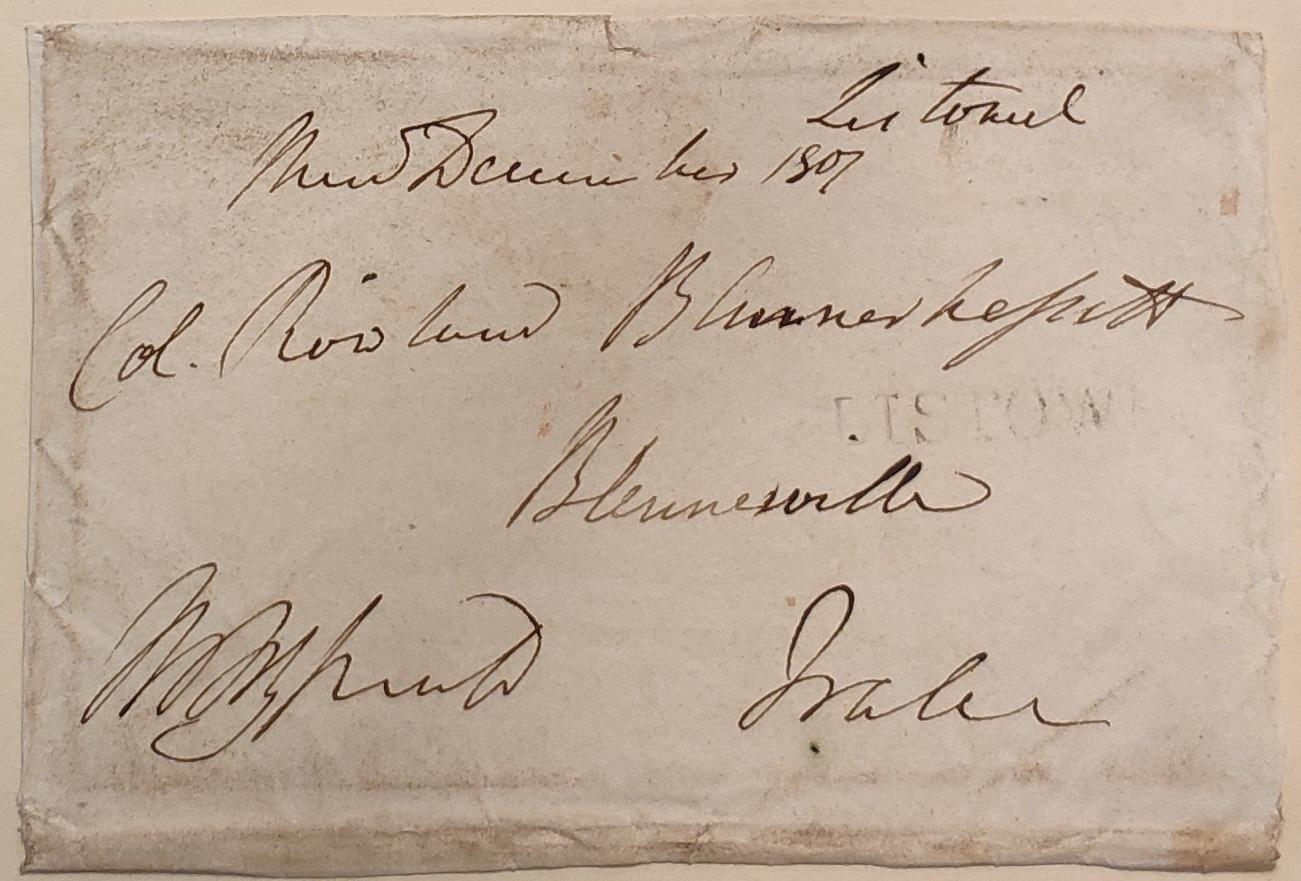 Listowel
Third December 1807
Col. Rowland Blennerhassett
LISTOW
Blennerville
Tralee